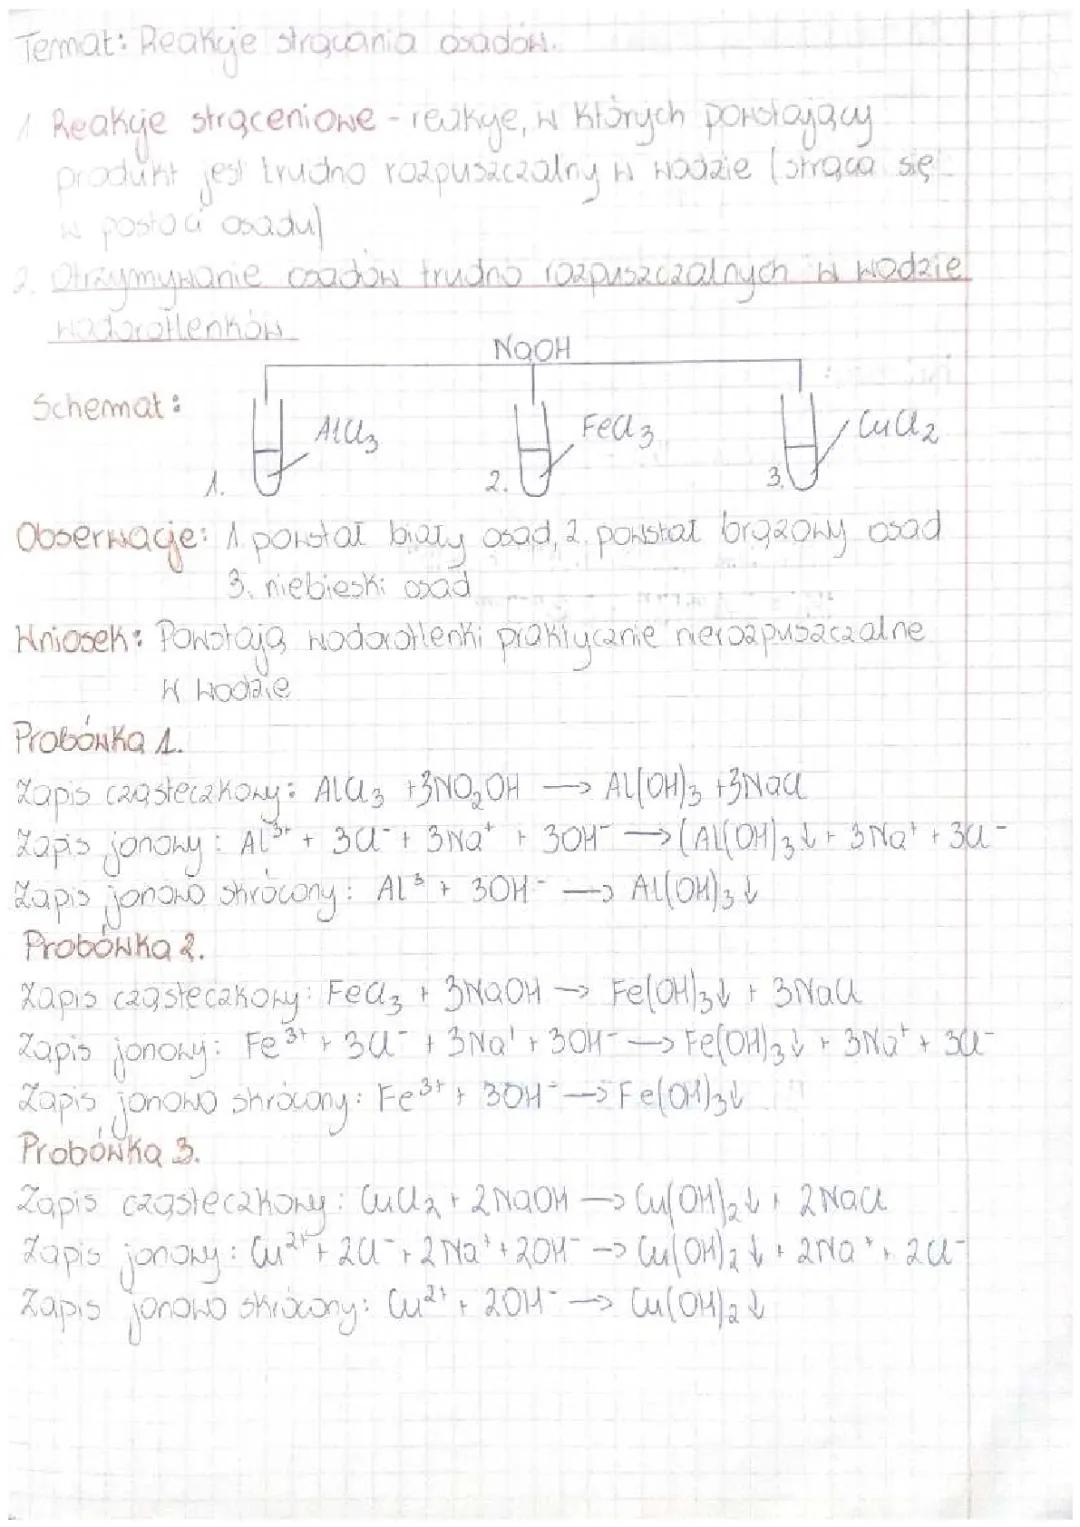 Temat: Reakcje strącania osadów.
1 Reakcje strąceniowe - reakcje, w których powstający
produkt jest trudno rozpuszczalny w wodzie (strąca się
w postaci osadu)
2. Otrzymywanie osadów trudno rozpuszczalnych w wodzie
wodorotlenków
NaOH
Schemat:
AlCl₃ FeCl₃ CuCl₂
1. 2. 3.
Obserwacje: 1. powstał biały osad, 2. powstał brązowy osad
3. niebieski osad
Wniosek: Powstają wodorotlenki praktycznie nierozpuszczalne
w wodzie
Probówka 1.
Zapis cząsteczkowy: AlCl₃ + 3NO₂OH → Al(OH)₃ + 3NaCl
Zapis jonowy: Al³⁺ + 3Cl⁻ + 3Na⁺ + 3OH⁻ → (Al(OH)₃↓ + 3Na⁺ + 3Cl⁻
Zapis jonowo skrócony: Al³ + 3OH⁻ → Al(OH)₃↓
Probówka 2.
Zapis cząsteczkowy: FeCl₃ + 3NaOH → Fe(OH)₃↓ + 3NaCl
Zapis jonowy: Fe³⁺ + 3Cl⁻ + 3Na⁺ + 3OH⁻ → Fe(OH)₃↓ + 3Na⁺ + 3Cl⁻
Zapis jonowo skrócony: Fe³⁺ + 3OH⁻ → Fe(OH)₃↓
Probówka 3.
Zapis cząsteczkowy: CuCl₂ + 2NaOH → Cu(OH)₂↓ + 2NaCl
Zapis jonowy: Cu²⁺ + 2Cl⁻ + 2Na⁺ + 2OH⁻ → Cu(OH)₂↓ + 2Na⁺ + 2Cl⁻
Zapis jonowo skrócony: Cu²⁺ + 2OH⁻ → Cu(OH)₂↓